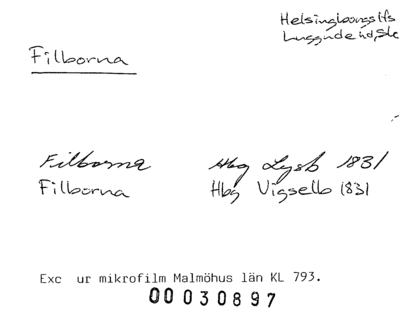 Helsingborgs lfs
Luggude hd, Sk
Filborna
Filborna Hbg Lysb 1831
Filborna Hbg Vigselb 1831
Exc ur mikrofilm Malmöhus län KL 793.
00 030897